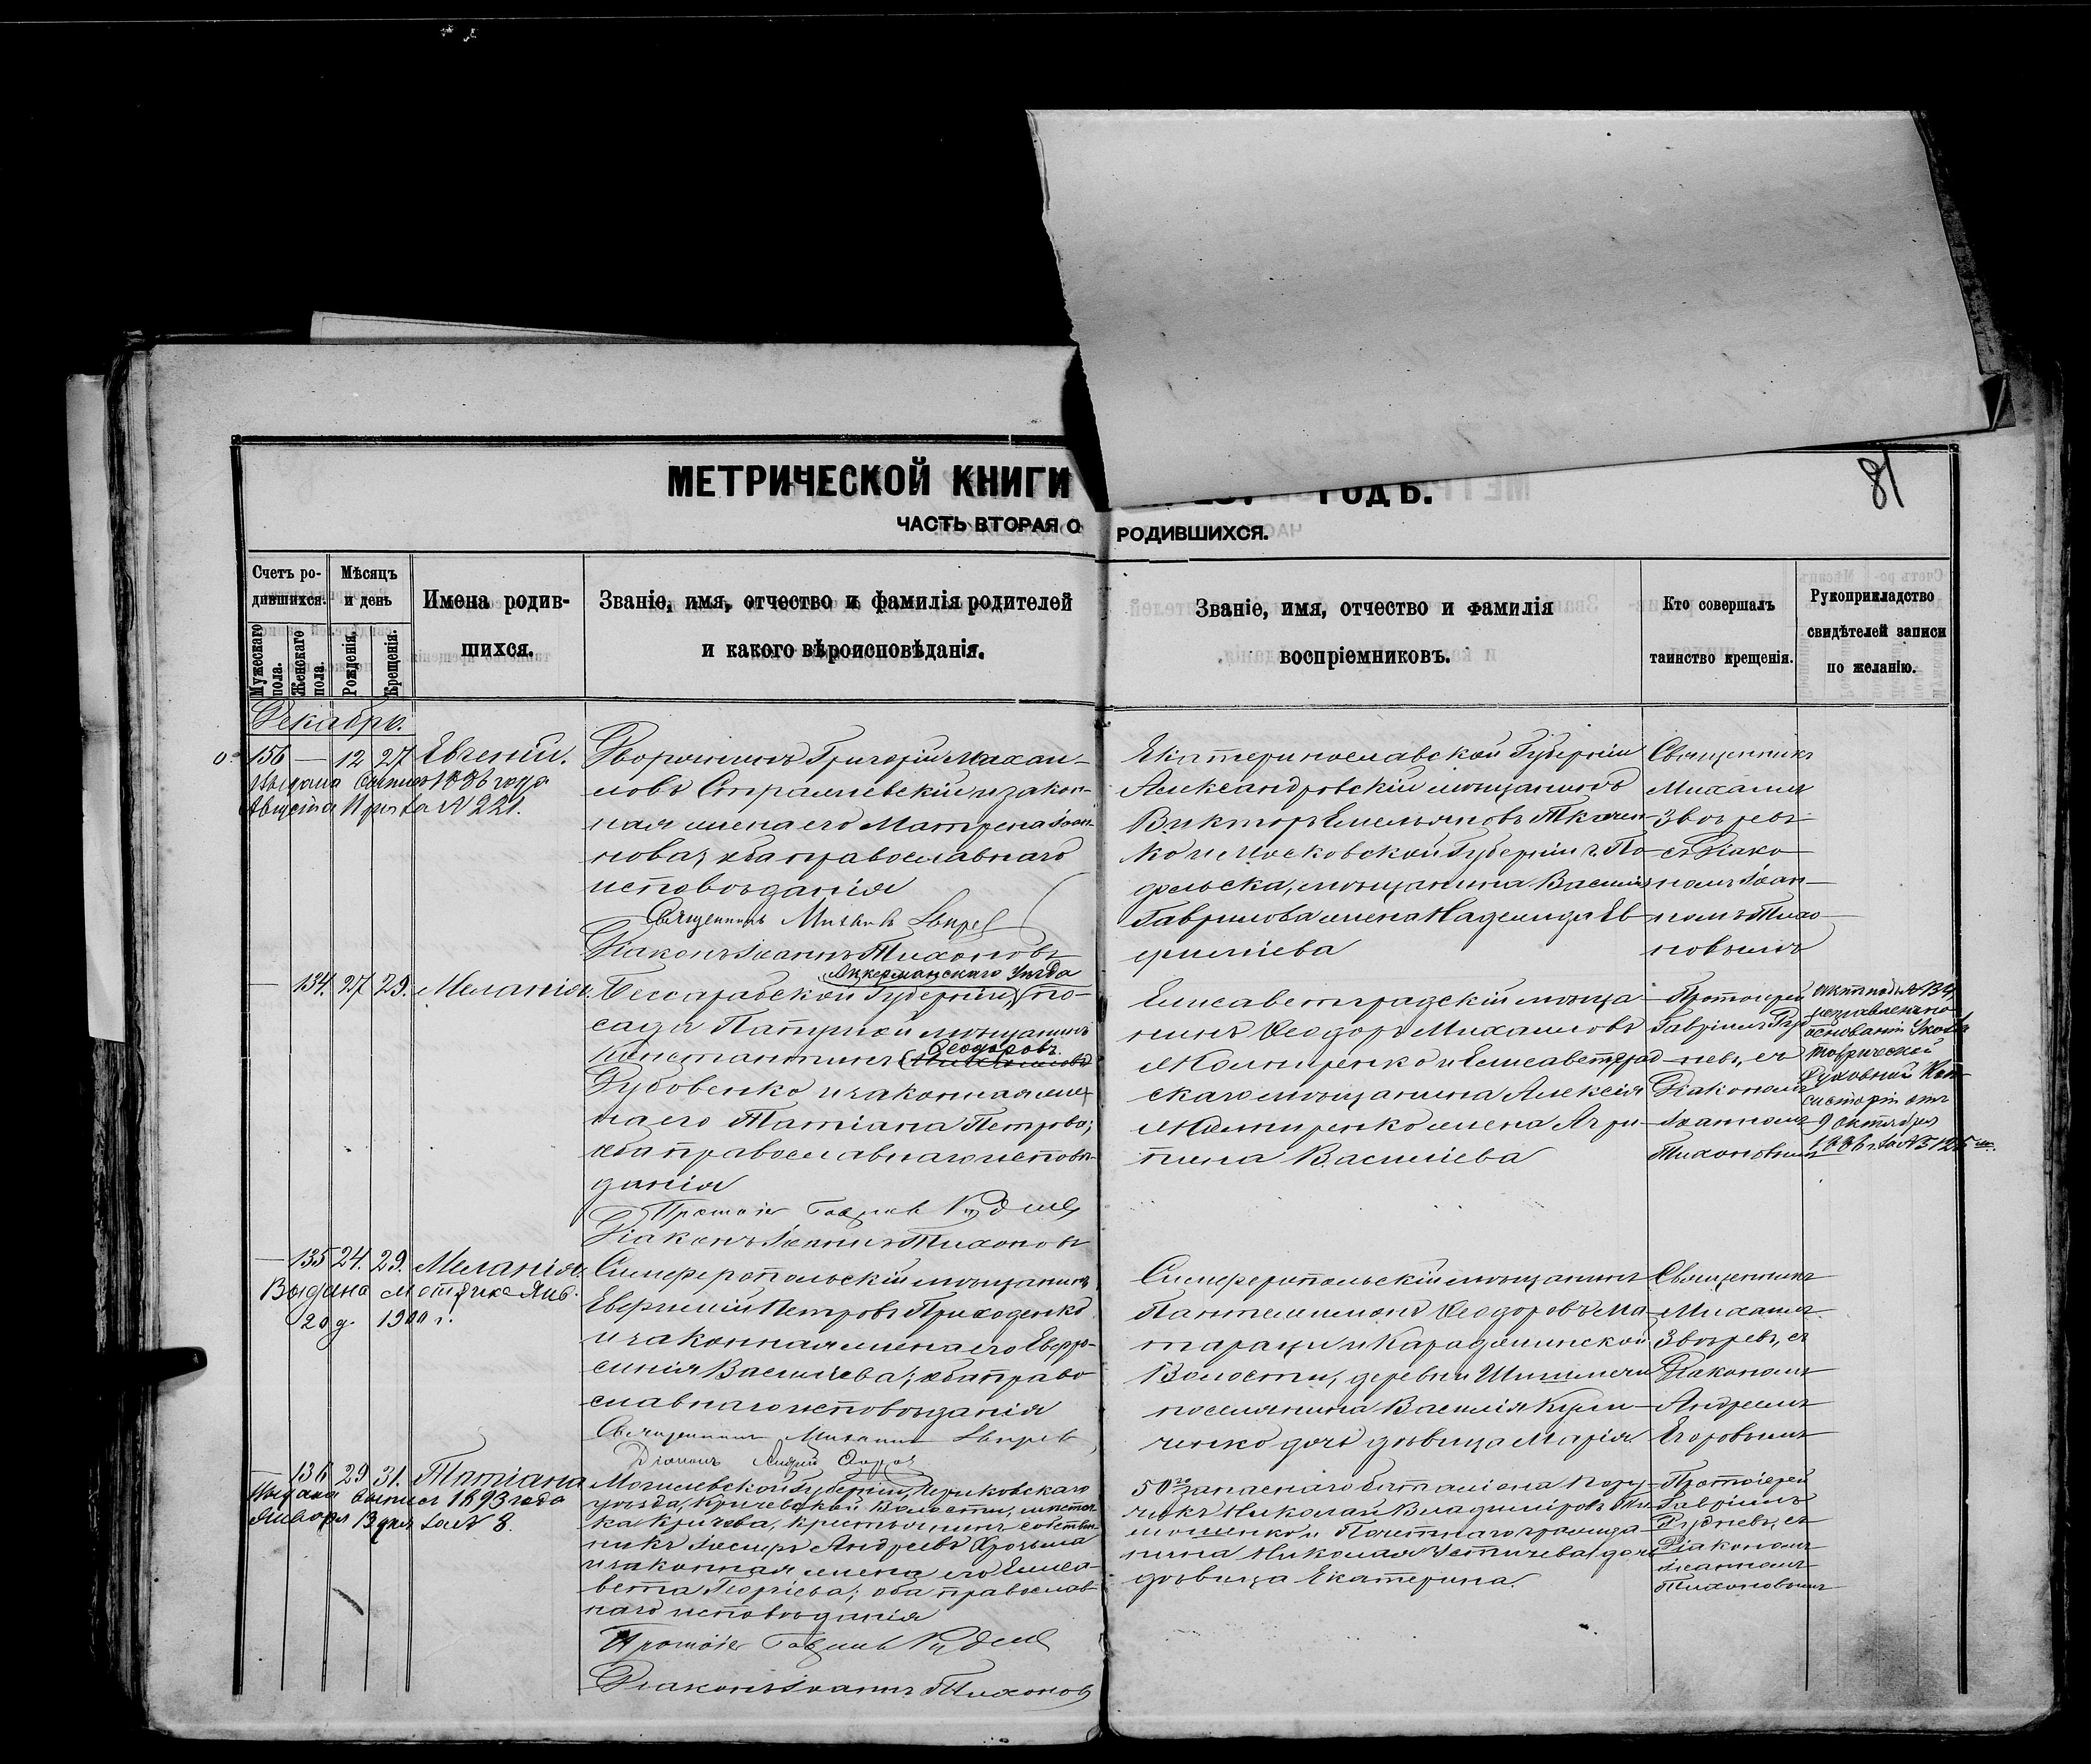 МЕТРИЧЕСКОЙ КНИГИ
ГОДЪ.
81
ЧАСТЬ ВТОРАЯ О
РОДИВШИХСЯ.
Счетъ ро-
дившихся.
Мужескаго пола.
Женскаго пола.
Мѣсяцъ
и день
Рожденія.
Крещенія.
Имена родив-
шихся.
Званіе, имя, отчество и фамилія родителей
и какого вѣроисповѣданія.
Званіе, имя, отчество и фамилія
воспріемниковъ.
Кто совершалъ
таинство крещенія.
Рукоприкладство
свидѣтелей записи
по желанію.
Декабрь.
156 — 12 27 Евгеній.
Выдана 1886 года
Августа № 221.
Дворянинъ Григорій Михаи-
ловъ и закон-
ная жена его Матрена Іоан-
нова; оба православнаго
исповѣданія
Священникъ Михаилъ
Діаконъ Іоаннъ Тихоновъ
Екатеринославской Губерніи
Александровскій мѣщанинъ
Викторъ Емельяновъ Ткачен-
ко и Московской Губерніи г. По
дольска, мѣщанина Василія
Гаврилова жена Надежда Ев-
фиміева
Священникъ
Михаилъ
Звѣревъ
съ Діако
номъ Іоан-
номъ Тихо-
новымъ
— 134. 27 29. Меланія.
Аккерманскаго Уѣзда
Бессарабской Губерніи, по-
сада Папушой мѣщанинъ
Ѳеодоровъ
Константинъ
Дубовенко и законная же-
на его Татіана Петрова;
оба православнаго исповѣ-
данія
Протоіер Гавріилъ Рудневъ
Діаконъ Іоаннъ Тихоновъ
Елисаветградскій мѣща-
нинъ Ѳеодоръ Михаиловъ
и Елисаветград
скаго мѣщанина Алексія
жена Агри-
пина Василіева
Протоіерей
Гавріилъ Руд
невъ, съ
Діакономъ
Іоанномъ
Тихоновымъ
Актъ подъ № 134
исправленъ на
основаніи Указа
Таврической
Духовной Кон-
систоріи отъ
9 октября
1886 г. за №
— 135 24. 29. Меланія.
Выдана метрика Янв.
20 д. 1900 г.
Симферопольскій мѣщанинъ
Евфимій Петровъ Приходенко
и законная жена его Евфро-
синія Василіева; оба право
славнаго исповѣданія
Священникъ Михаилъ Звѣревъ
Діаконъ Андрей
Симферопольскій мѣщанинъ
Пантелеимонъ Ѳеодоровъ Ма
и
Волости, деревни
поселянина Василія Кули-
ченко дочь дѣвица Марія.
Священникъ
Михаилъ
Звѣревъ, съ
Діакономъ
Андреемъ
Егоровымъ
— 136 29 31. Татіана
Выдана выпись 1893 года
Января 13 дня за № 8.
Могилевской Губерніи, Чериковскаго
уѣзда, Кричевской Волости, мѣстеч-
ка Кричева, крестьянинъ собствен-
никъ Іосифъ Андреевъ
и законная жена его Елиса-
вета Георгіева; оба православ-
наго исповѣданія
Протоіер Гавріилъ Рудневъ
Діаконъ Іоаннъ Тихоновъ
50го запаснаго баталіона Пору-
чикъ Николай Владиміровъ Ти-
мошенко и Почетнаго гражда-
нина Николая дочь
дѣвица Екатерина.
Протоіерей
Гавріилъ
Рудневъ, съ
Діакономъ
Іоанномъ
Тихоновымъ